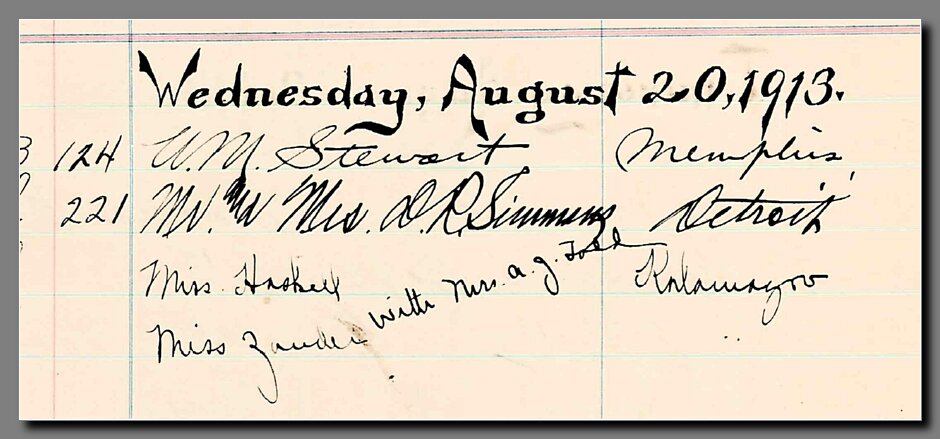 Wednesday, August 20, 1913.
124 W. M. Stewart Memphis
221 Mr. and Mrs. D. R. Simmens Detroit
Miss Haskell with Mrs. A. J. Todd Kalamazoo
Miss Zander